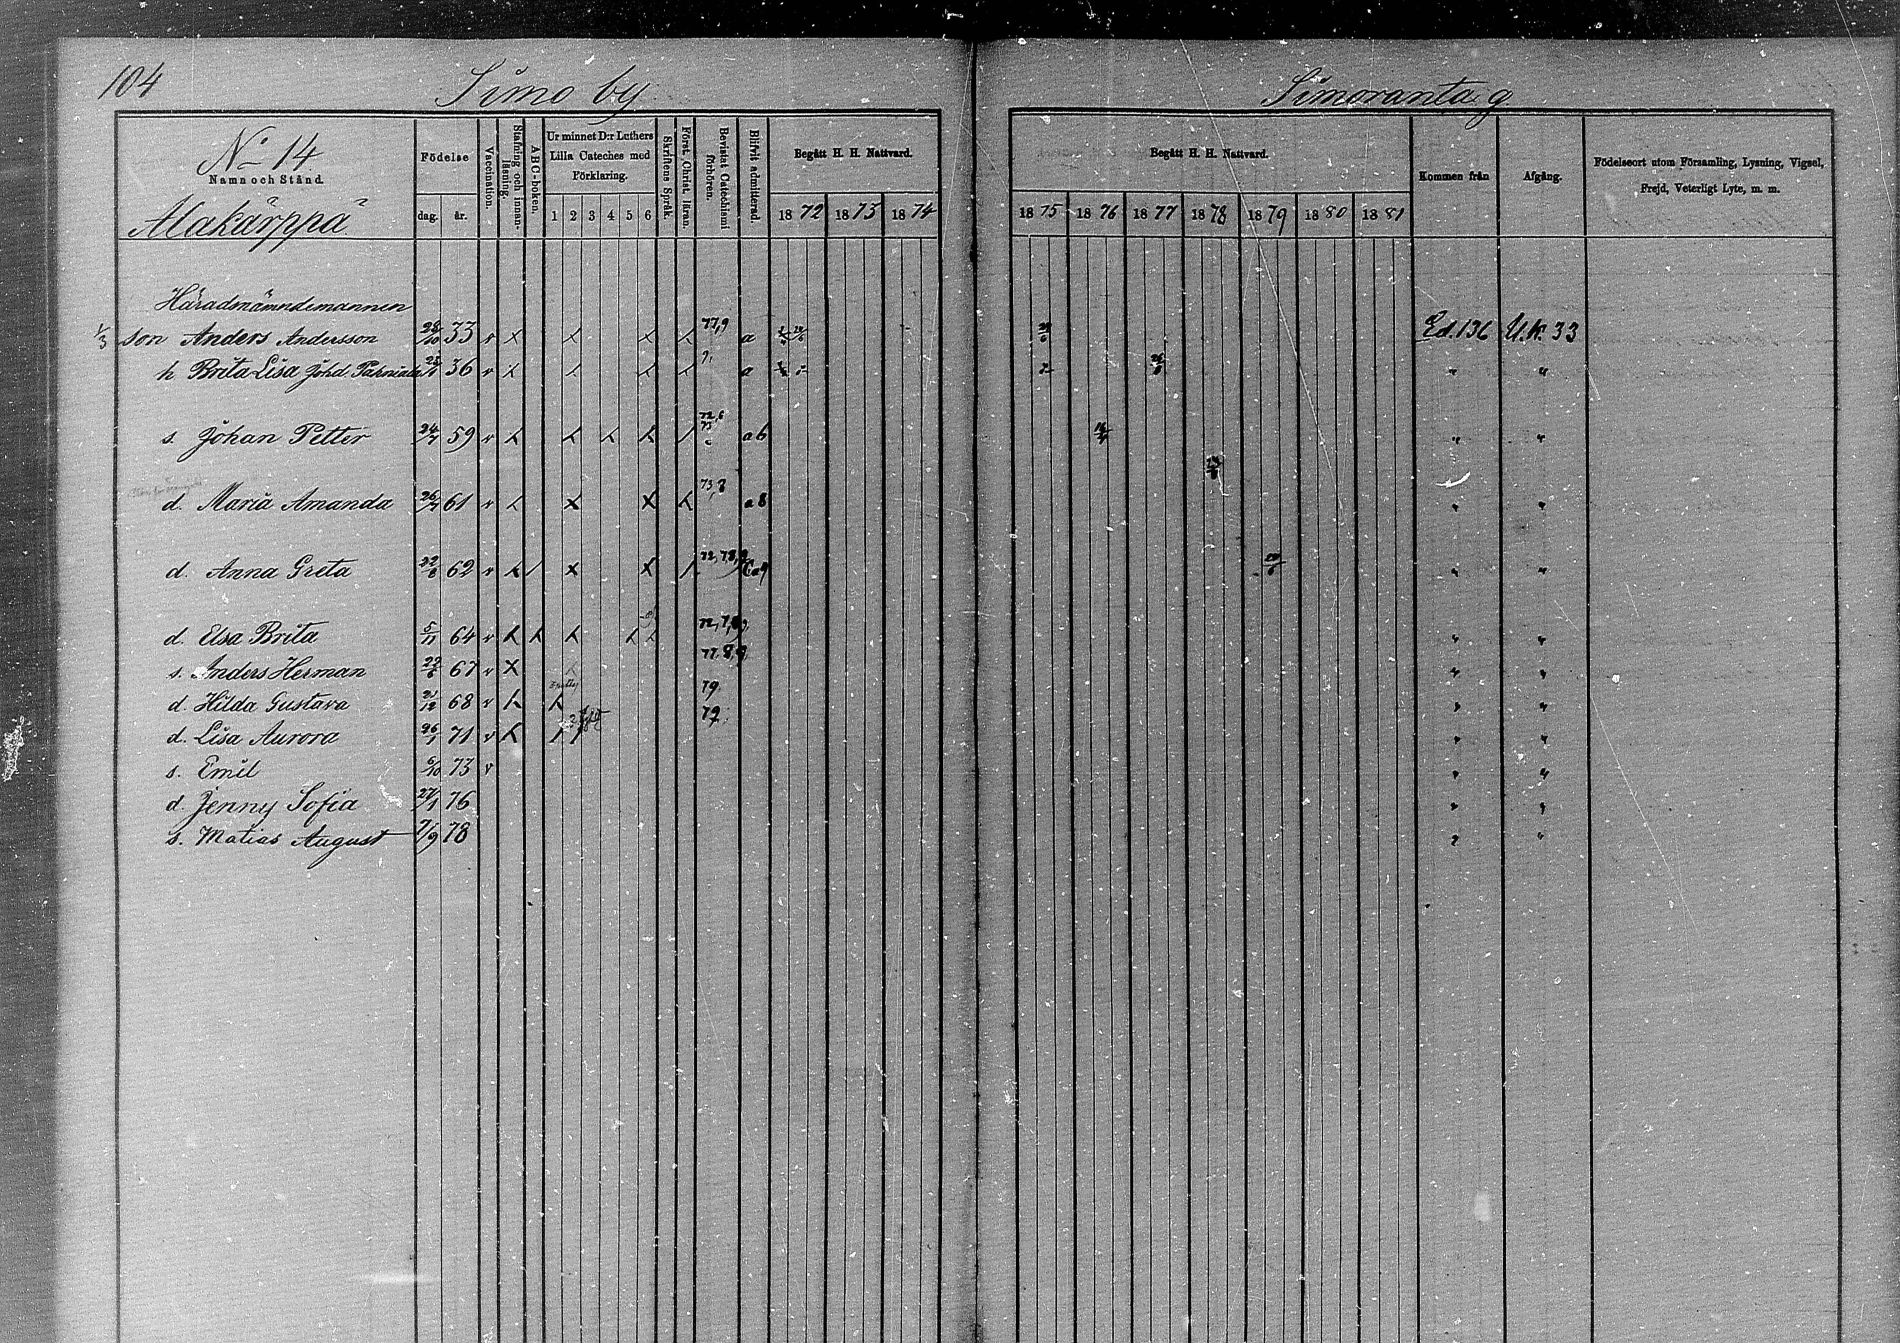 104 Simo by Simoranta g
No 14
Namn och Stånd.
Alakärppä
Födelse
dag. år.
Vaccination.
Stafning och innan-läsning.
ABC-boken.
Ur minnet D:r Luthers
Lilla Cateches med
Förklaring.
1 2 3 4 5 6
Skriftens Språk.
Först. Christ. läran.
Bevistat Catechismi förhören.
Blifvit admitterad.
Begått H. H. Nattvard.
1872 1873 1874
Begått H. H. Nattvard.
1875 1876 1877 1878 1879 1880 1881
Kommen från
Afgång.
Födelseort utom Församling, Lysning, Vigsel,
Frejd, Veterligt Lyte, m. m.
Häradsnämndemannen
1/3 son Anders Andersson 33 v x 77,9 a Ed. 136 U.K. 33
h Brita Lisa Johd. 36 v a " "
s. Johan Petter 24/7 59 v 72,6 a6 " "
d. Maria Amanda 26/7 61 v x x 73,8 a8 " "
d. Anna Greta 22/8 62 v x x 72,78,9 a9 " "
d. Elsa Brita 5/11 64 v " "
s. Anders Herman 67 v x 77,8,9 " "
d. Hilda Gustava 68 v 79 " "
d. Lisa Aurora 26/1 71 v 79 " "
s. Emil 6/10 73 v " "
d. Jenny Sofia 27/1 76 " "
s. Matias August 7/9 78 " "